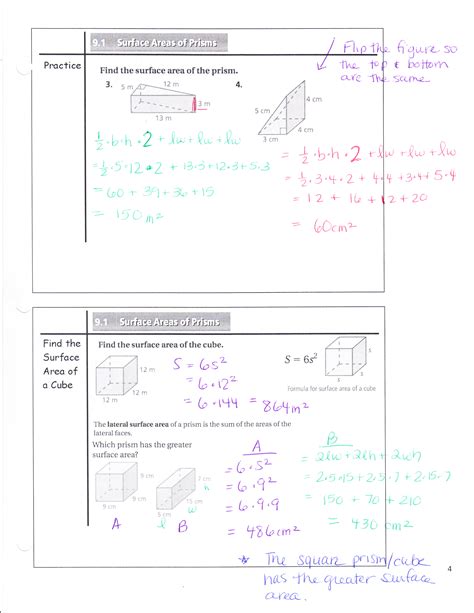 9.1 Surface Areas of Prisms
Flip the figure so
the top & bottom
are the same
Practice
Find the surface area of the prism.
3.
5 m
12 m
3 m
13 m
4.
5 cm
4 cm
4 cm
3 cm
½·b·h·2 + lw + lw + lw
= ½·5·12·2 + 13·3 + 12·3 + 5·3
= 60 + 39 + 36 + 15
= 150 m²
= ½·b·h·2 + lw + lw + lw
= ½·3·4·2 + 4·4 + 3·4 + 5·4
= 12 + 16 + 12 + 20
= 60cm²
9.1 Surface Areas of Prisms
Find the
Surface
Area of
a Cube
Find the surface area of the cube.
12 m
12 m
12 m
S = 6s²
= 6·12²
= 6·144 = 864m²
S = 6s²
s
s
s
Formula for surface area of a cube
The lateral surface area of a prism is the sum of the areas of the
lateral faces.
Which prism has the greater
surface area?
9 cm
9 cm
9 cm
A
7 cm
h
15 cm
w
5 cm
l
B
A
= 6·s²
= 6·9²
= 6·9·9
= 486cm²
B
= 2lw + 2lh + 2wh
= 2·5·15 + 2·5·7 + 2·15·7
= 150 + 70 + 210
= 430 cm²
* The square prism/cube
has the greater surface
area.
4